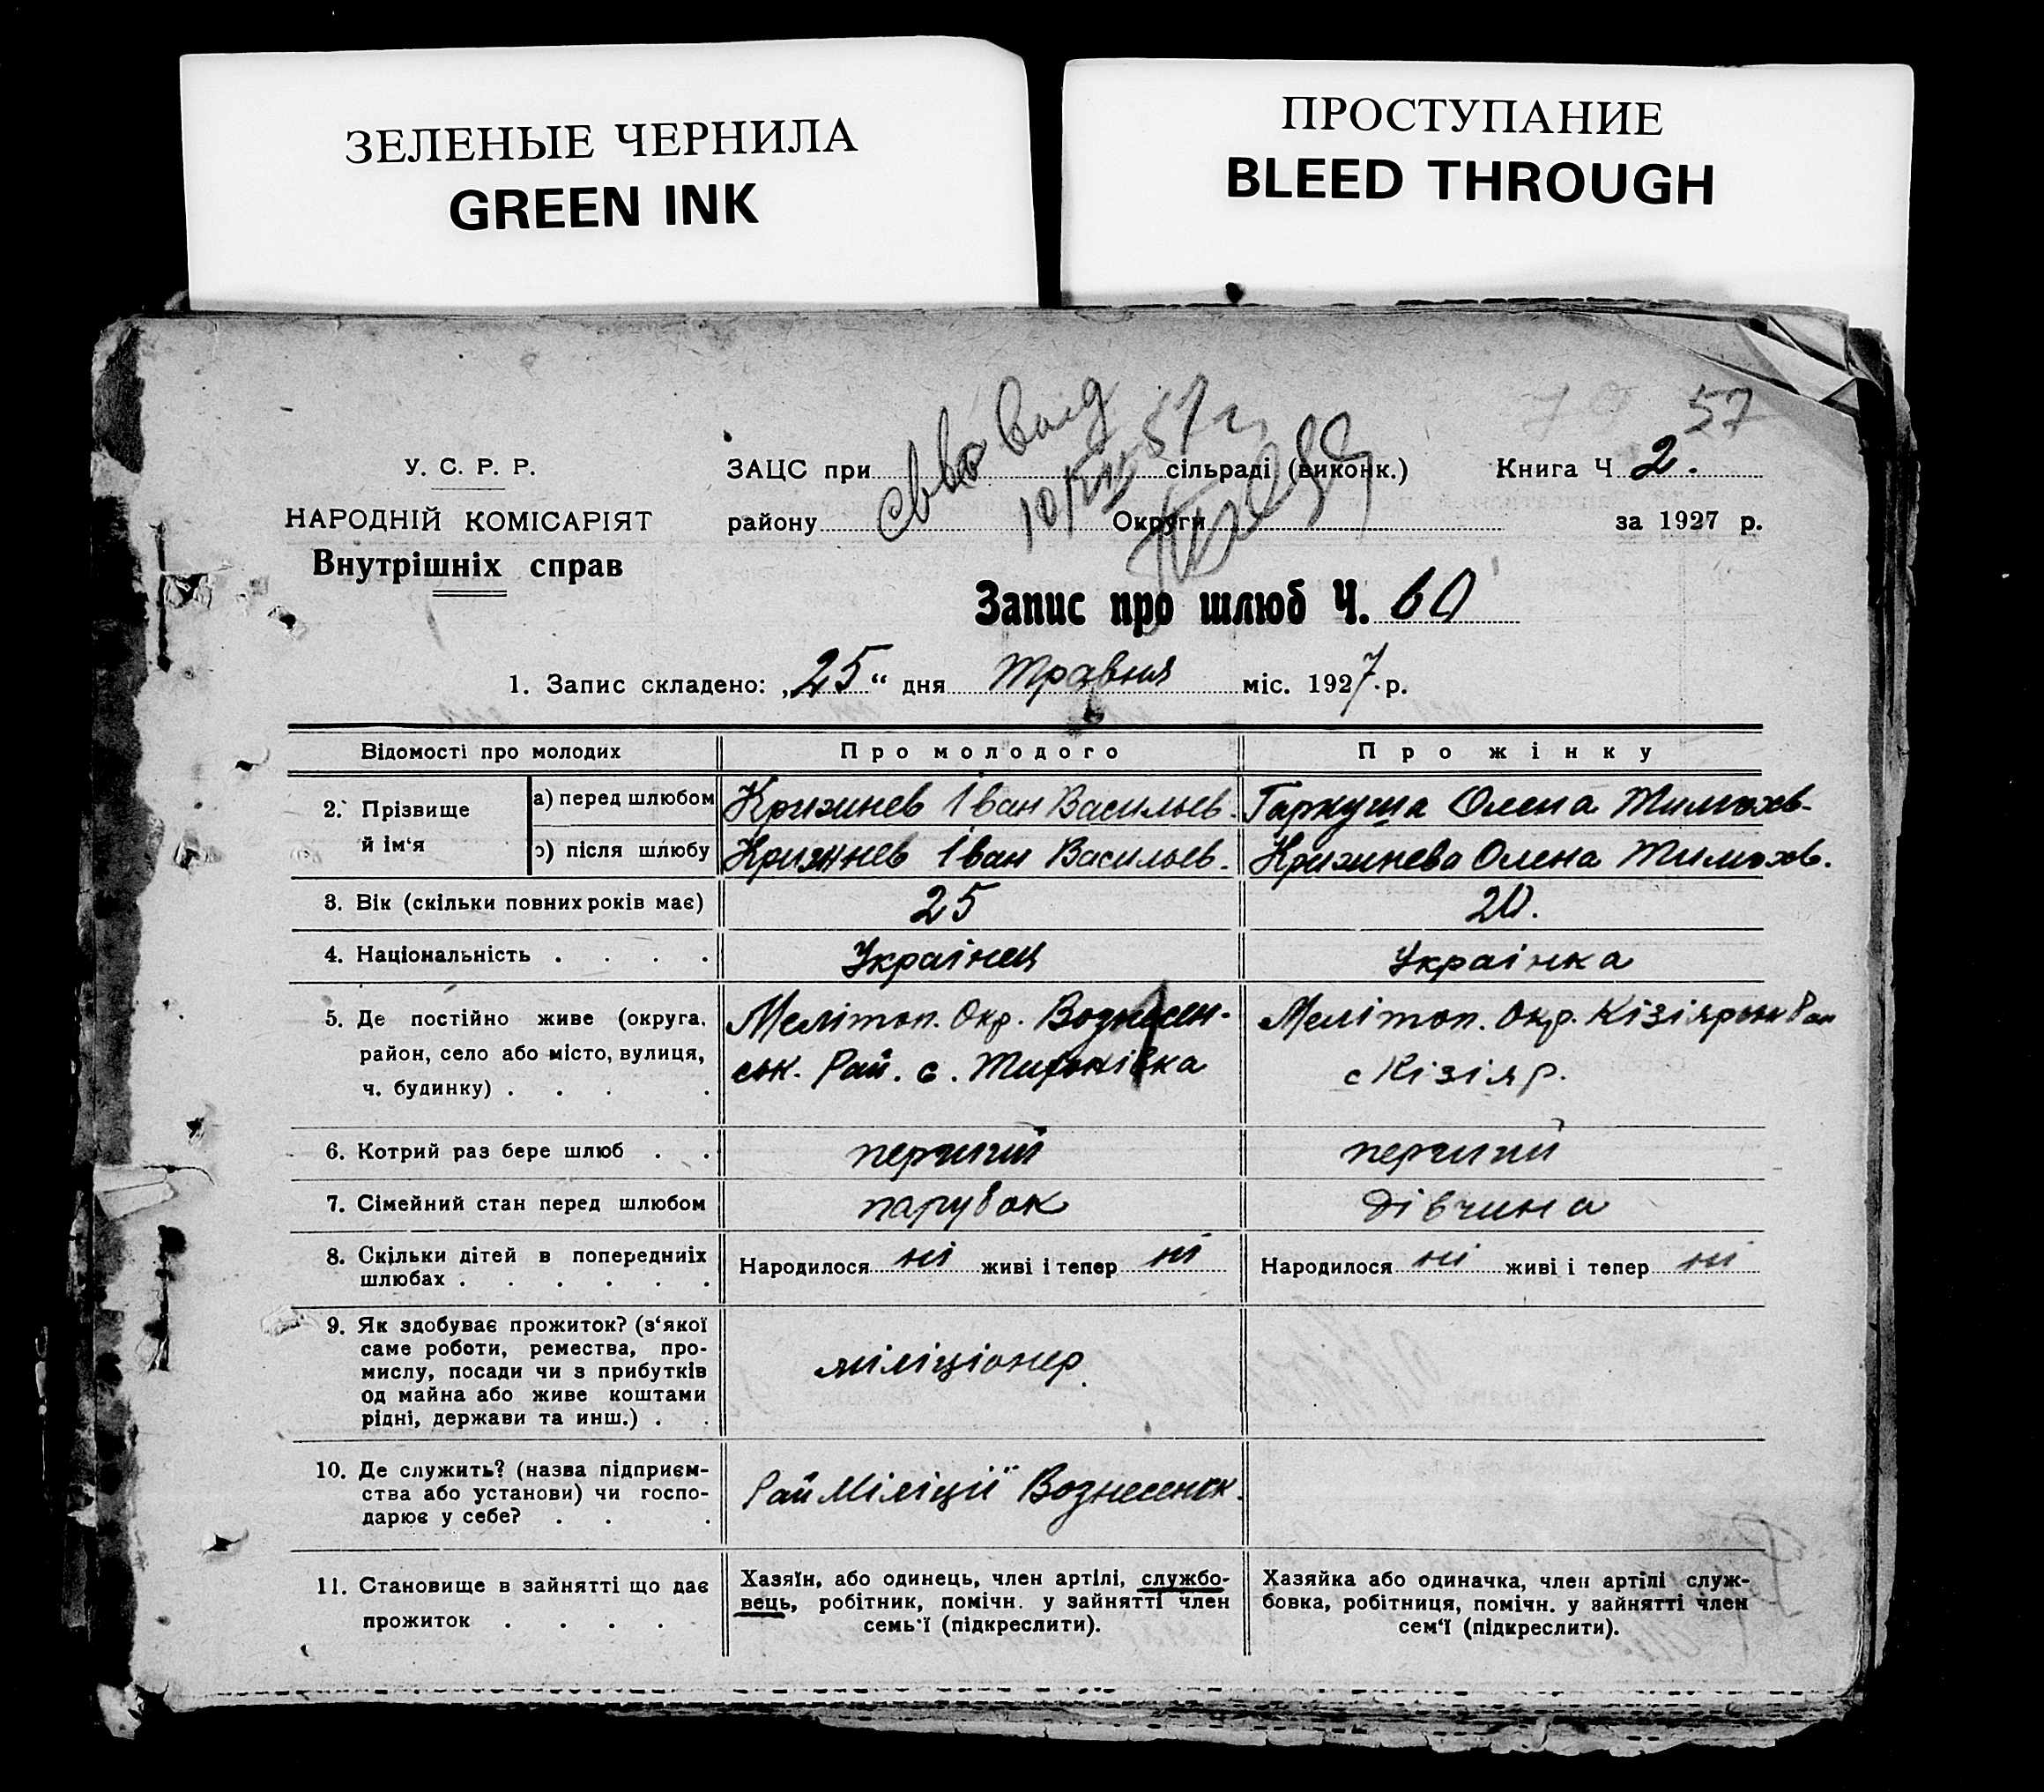 ЗЕЛЕНЫЕ ЧЕРНИЛА
GREEN INK
ПРОСТУПАНИЕ
BLEED THROUGH
57
У. С. Р. Р.
НАРОДНІЙ КОМІСАРІЯТ
Внутрішніх справ
ЗАЦС при сільраді (виконк.) Книга Ч 2.
району Округи за 1927 р.
Запис про шлюб Ч. 60
1. Запис складено: „25“ дня Травня міс. 1927.р.
Відомості про молодих Про молодого Про жінку
2. Прізвище й ім‘я
а) перед шлюбом Крижнев Іван Васильев. Гаркуша Олена Тимохв.
б) після шлюбу Крижнев Іван Васильев. Крижнева Олена Тимохв.
3. Вік (скільки повних років має) 25 20.
4. Національність . . . . Украінец Украінка
5. Де постійно живе (округа, Мелітоп. Окр. Вознесен- Мелітоп. Окр.
район, село або місто, вулиця, ськ. Рай. с. с Кізіяр.
ч. будинку) . . . .
6. Котрий раз бере шлюб . . перший перший
7. Сімейний стан перед шлюбом парубок дівчина
8. Скільки дітей в попередниіх
шлюбах . . . . . . Народилося ні живі і тепер ні Народилося ні живі і тепер ні
9. Як здобуває прожиток? (з‘якої
саме роботи, ремества, про-
мислу, посади чи з прибутків міліціонер.
од майна або живе коштами
рідні, держави та инш.) . .
10. Де служить? (назва підприєм-
ства або установи) чи госпо- РайМіліції Вознесенск.
дарює у себе? . . .
11. Становище в зайнятті що дає
прожиток . . . .
Хазяїн, або одинець, член артілі, службо-
вець, робітник, помічн. у зайнятті член
семь‘ї (підкреслити).
Хазяйка або одиначка, член артілі служ-
бовка, робітниця, помічн. у зайнятті член
сем‘ї (підкреслити).